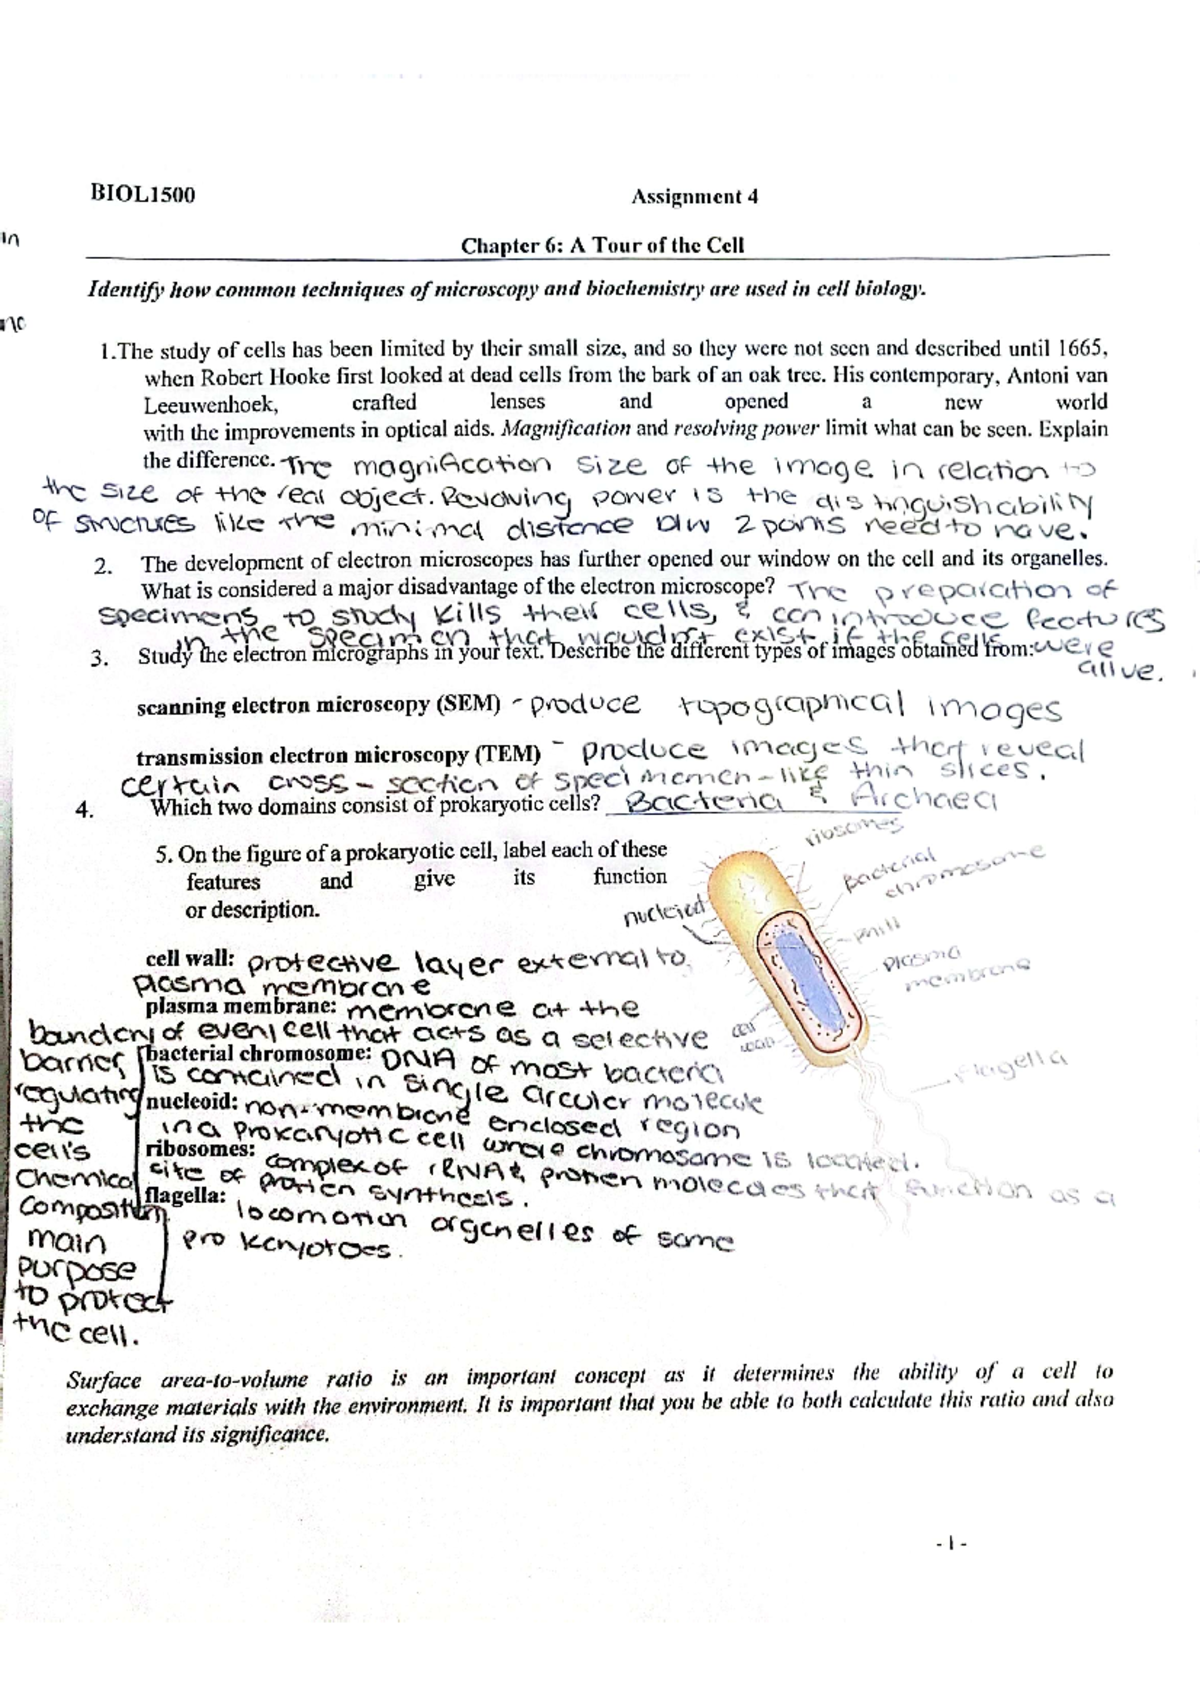 BIOL1500 Assignment 4
Chapter 6: A Tour of the Cell
Identify how common techniques of microscopy and biochemistry are used in cell biology.
1.The study of cells has been limited by their small size, and so they were not seen and described until 1665,
when Robert Hooke first looked at dead cells from the bark of an oak tree. His contemporary, Antoni van
Leeuwenhoek, crafted lenses and opened a new world
with the improvements in optical aids. Magnification and resolving power limit what can be seen. Explain
the difference. The magnification size of the image in relation to
the size of the real object. Resolving power is the distinguishability
of structures like the minimal distance b/w 2 points need to have.
2. The development of electron microscopes has further opened our window on the cell and its organelles.
What is considered a major disadvantage of the electron microscope? The preparation of
specimens to study kills their cells, & can introduce features
in the specimen that wouldn't exist if the cells were
alive.
3. Study the electron micrographs in your text. Describe the different types of images obtained from:
scanning electron microscopy (SEM) - produce topographical images
transmission electron microscopy (TEM) - produce images that reveal
certain cross-section of specimemen-like thin slices.
4. Which two domains consist of prokaryotic cells? Bacteria & Archaea
5. On the figure of a prokaryotic cell, label each of these
features and give its function
or description.
ribsomes
Bacterial
chromosome
nucleiod
pnili
plasma
membrane
cell
flagella
cell wall: protective layer external to
plasma membrane
plasma membrane: membrane at the
boundary of every cell that acts as a selective
barrier,
regulating
the
cell's
chemical
composition.
main
purpose
to protect
the cell.
bacterial chromosome: DNA of most bacteria
is contained in single circular molecule
nucleoid: non-membrane enclosed region
in a prokaryotic cell where chromosome is located.
ribosomes: complex of rRNA & protien molecules that function as a
site of protien synthesis.
flagella: locomotion organelles of some
prokaryotoes.
Surface area-to-volume ratio is an important concept as it determines the ability of a cell to
exchange materials with the environment. It is important that you be able to both calculate this ratio and also
understand its significance.
- 1 -